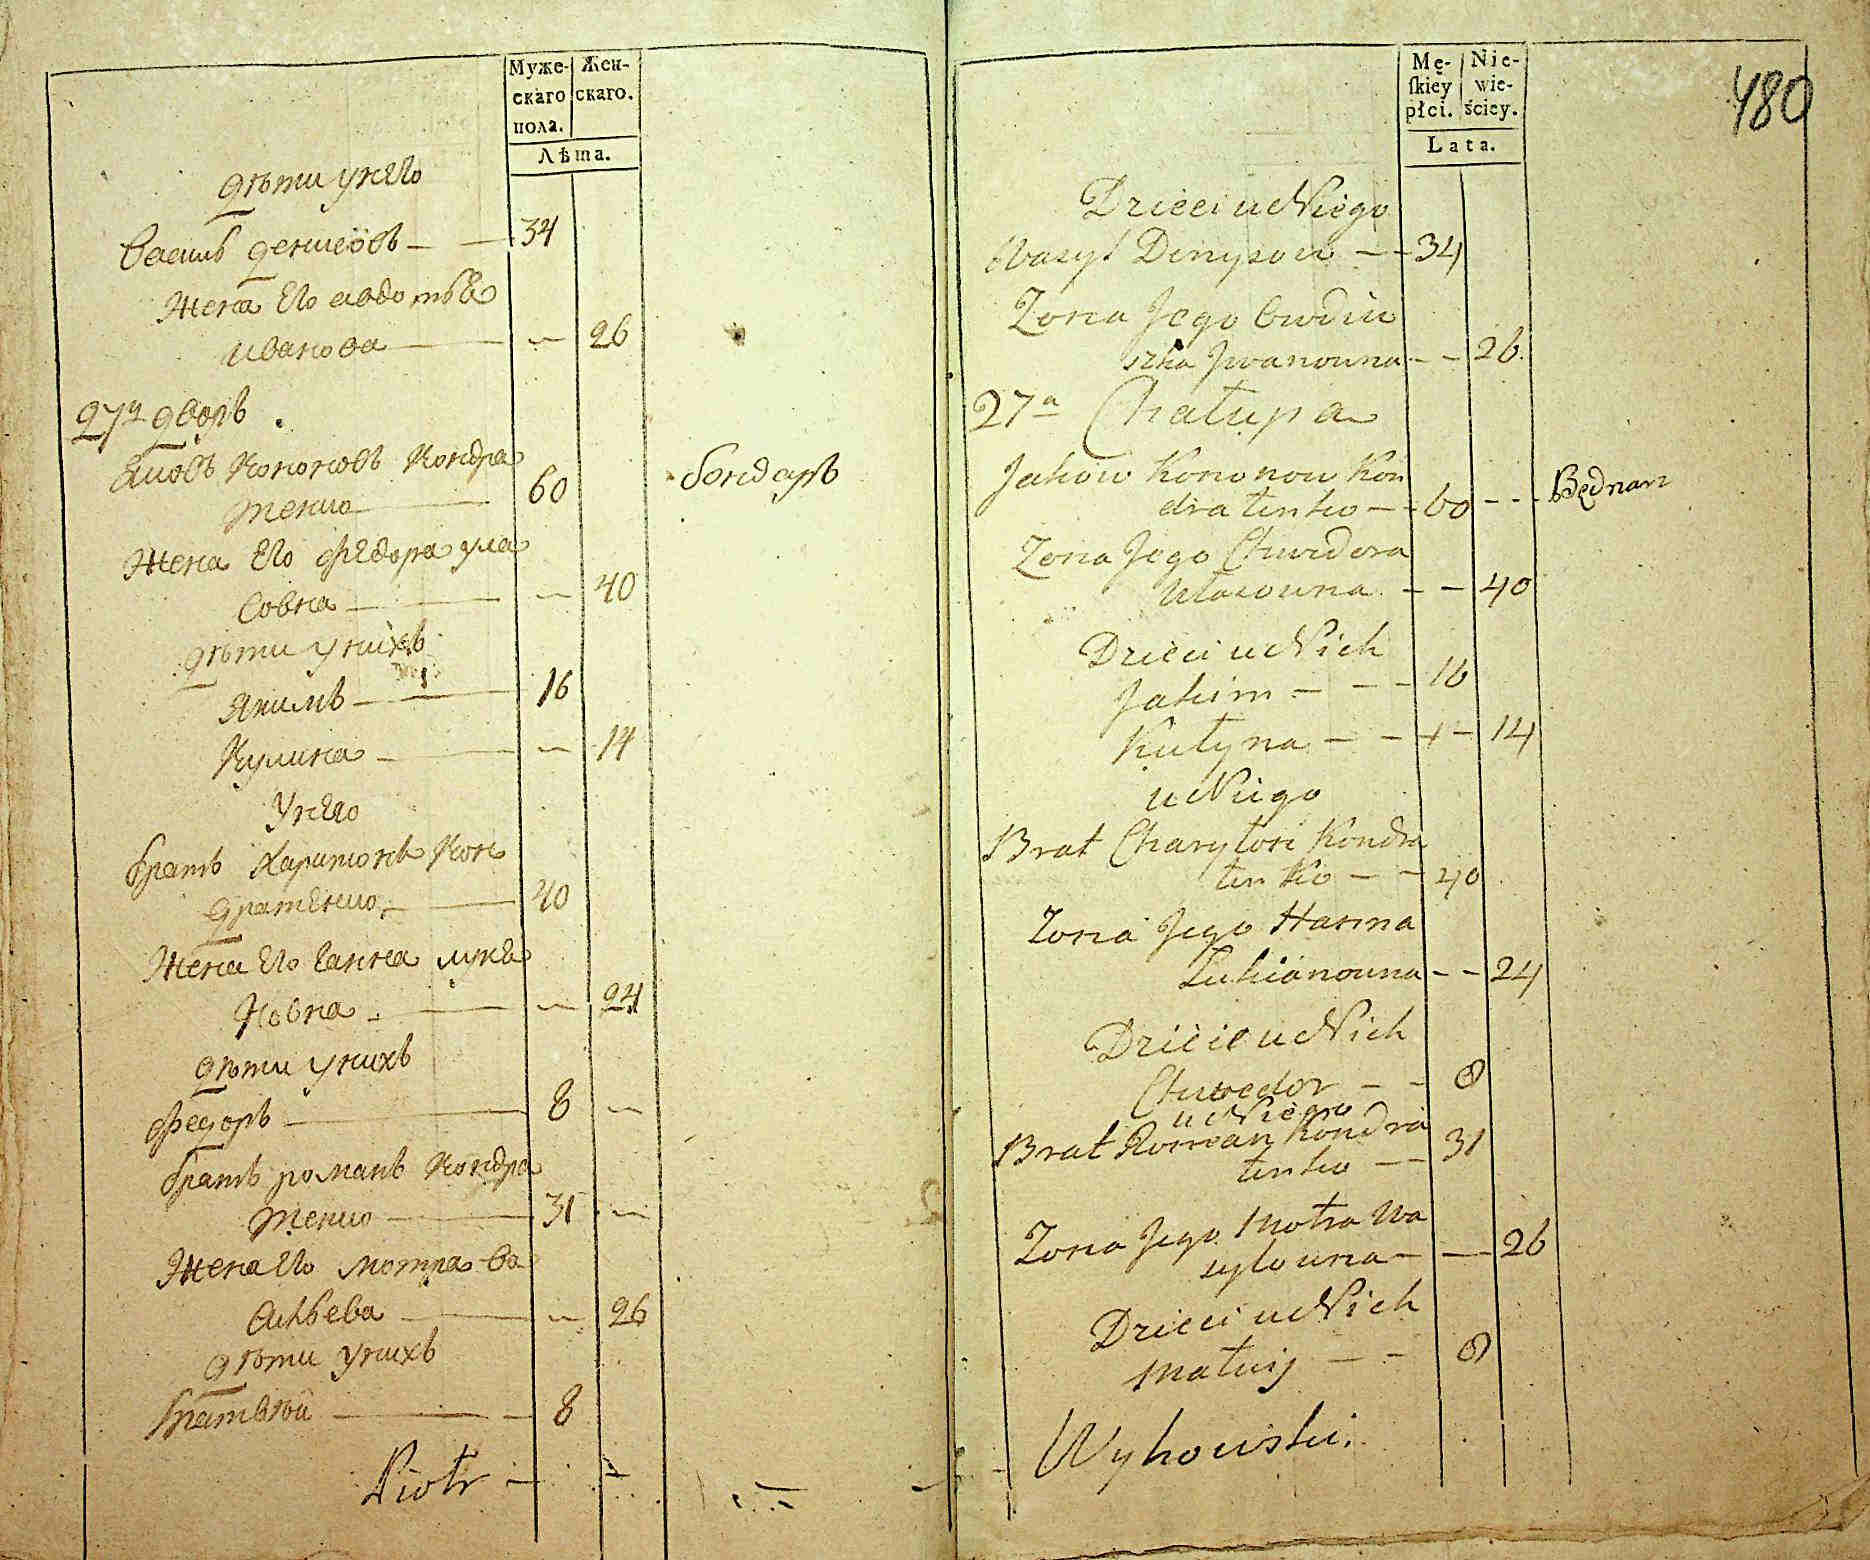 Муже-
скаго
пола.
Жен-
скаго.
Лѣта.
дѣти унего
Василь денисовъ — — 34
Жена его авдотья
иванова — — 26
27й дворъ.
Яковъ Кононовъ Кондра
тенко — 60 бондарь
Жена его федора ула
совна — — 40
дѣти унихъ
Якимъ — 16
Кулина — — 14
Унего
братъ Харитонъ Кон
дратенко — 40
Жена его ганна лукья
новна — — 24
дѣти унихъ
федоръ — 8 —
братъ романъ Кондра
тенко — 31 —
Жена его мотра ва
сильева — — 26
дѣти унихъ
— 8
Piotr —
480
Mę-
ſkiey
płci.
Nie-
wie-
ściey.
Lata.
Dzieci u Niego
Wasyl Denysow — — 34
Zona Jego Owdiu
szka Jwanowna — — 26.
27a Chałupa
Jakow Kononow Kon
dratenko — — 60 — — Będnarz
Zona Jego Chwedora
Ułasowna — — 40
Dzieci u Nich
Jakim — — — 16
Kułyna — — + — 14
u Niego
Brat Charyton Kondra
tenko — — 40
Zona Jego Hanna
Łukianowna — — 24
Dziecie u Nich
Chwedor — — 8
u Niego
Brat Roman Kondra
tenko — — 31
Zona Jego Motra Wa
sylowna — — 26
Dzieci u Nich
Matwij — — 8
Wyhowski.